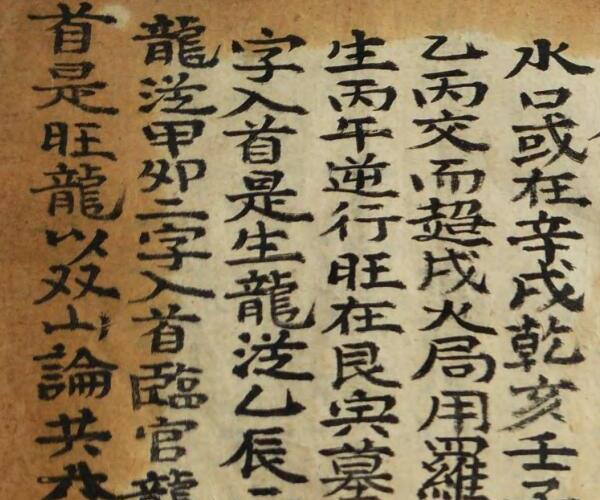 水口或在辛戌乾亥壬
乙丙交而超戌火局用羅
生丙午逆行旺在艮寅墓
字入首是生龍從乙辰
龍從甲卯二字入首臨官龍
首是旺龍以双山論共